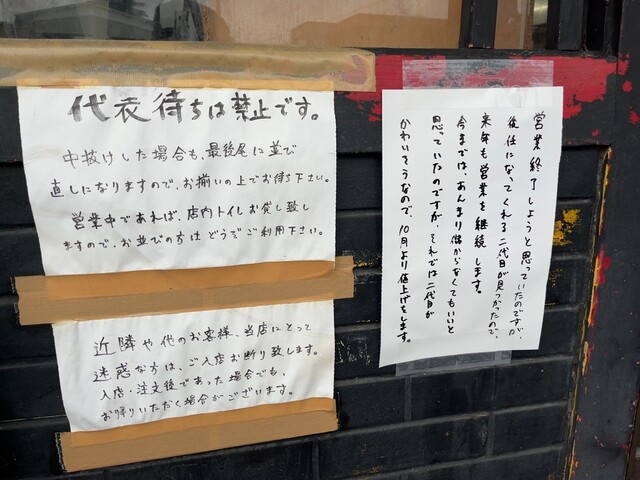 代表待ちは禁止です。
中抜けした場合も、最後尾に並び
直しになりますので、お揃いの上でお待ち下さい。
営業中であれば、店内トイレお貸し致し
ますので、お並びの方はどうぞご利用下さい。
近隣や他のお客様、当店にとって
迷惑な方は、ご入店お断り致します。
入店・注文後であった場合でも、
お帰りいただく場合がございます。
営業終了しようと思っていたのですが、
後任になってくれる二代目が見つかったので、
来年も営業を継続します。
今までは、あんまり儲からなくてもいいと
思っていたのですが、それでは二代目が
かわいそうなので、10月より値上げをします。